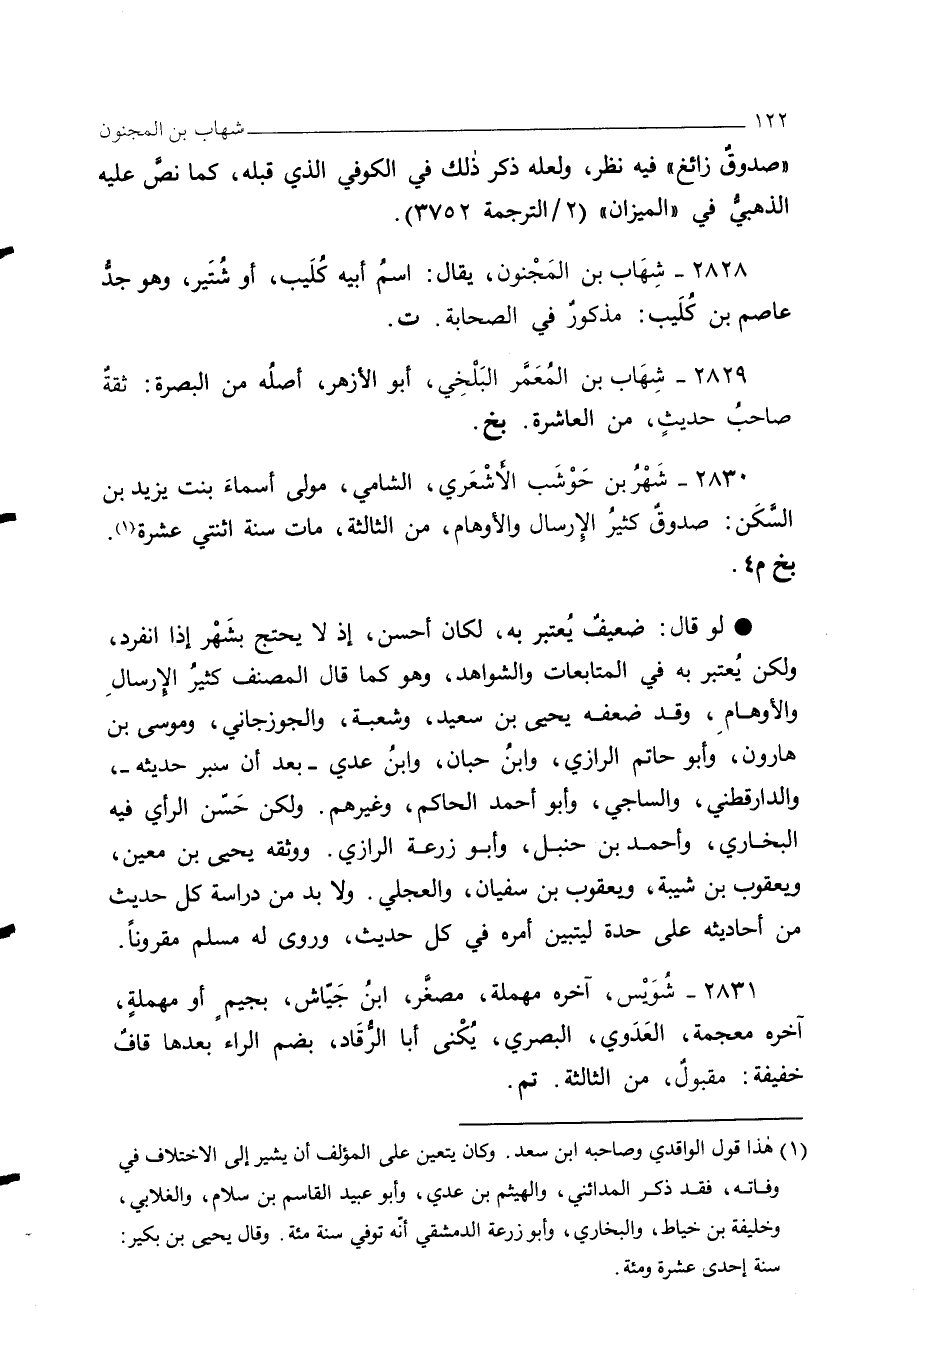 ١٢٢ شهاب بن المجنون
«صدوقٌ زائغ» فيه نظر، ولعله ذكر ذٰلك في الكوفي الذي قبله، كما نصَّ عليه
الذهبيُّ في «الميزان» (٢/الترجمة ٣٧٥٢).
٢٨٢٨ ـ شِهَاب بن المَجْنون، يقال: اسمُ أبيه كُلَيب، أو شُتَير، وهو جدُّ
عاصم بن كُلَيب: مذكورٌ في الصحابة. ت.
٢٨٢٩ ـ شِهَاب بن المُعَمَّر البَلْخِي، أبو الأزهر، أصلُه من البصرة: ثقةٌ
صاحبُ حديثٍ، من العاشرة. بخ.
٢٨٣٠ ـ شَهْرُ بن حَوْشَب الأَشْعَري، الشامي، مولى أسماءَ بنت يزيد بن
السَّكَن: صدوقٌ كثيرُ الإِرسال والأوهام، من الثالثة، مات سنة اثنتي عشرة(١).
بخ م٤.
● لو قال: ضعيفٌ يُعتبر به، لكان أحسن، إذ لا يحتج بشَهْر إذا انفرد،
ولكن يُعتبر به في المتابعات والشواهد، وهو كما قال المصنف كثيرُ الإِرسالِ
والأوهامِ، وقد ضعفه يحيى بن سعيد، وشعبة، والجوزجاني، وموسى بن
هارون، وأبو حاتم الرازي، وابنُ حبان، وابنُ عدي ـ بعد أن سبر حديثه ـ،
والدارقطني، والساجي، وأبو أحمد الحاكم، وغيرهم. ولكن حَسّن الرأي فيه
البخاري، وأحمد بن حنبل، وأبو زرعة الرازي. ووثقه يحيى بن معين،
ويعقوب بن شيبة، ويعقوب بن سفيان، والعجلي. ولا بد من دراسة كل حديث
من أحاديثه على حدة ليتبين أمره في كل حديث، وروى له مسلم مقروناً.
٢٨٣١ ـ شُوَيْس، آخره مهملة، مصغَّر، ابنُ جَيّاش، بجيمٍ أو مهملةٍ،
آخره معجمة، العَدَوي، البصري، يُكْنى أبا الرُّقَاد، بضم الراء بعدها قافٌ
خفيفة: مقبولٌ، من الثالثة. تم.
(١) هٰذا قول الواقدي وصاحبه ابن سعد. وكان يتعين على المؤلف أن يشير إلى الاختلاف في
وفاته، فقد ذكر المدائني، والهيثم بن عدي، وأبو عبيد القاسم بن سلام، والغلابي،
وخليفة بن خياط، والبخاري، وأبو زرعة الدمشقي أنّه توفي سنة مئة. وقال يحيى بن بكير:
سنة إحدى عشرة ومئة.